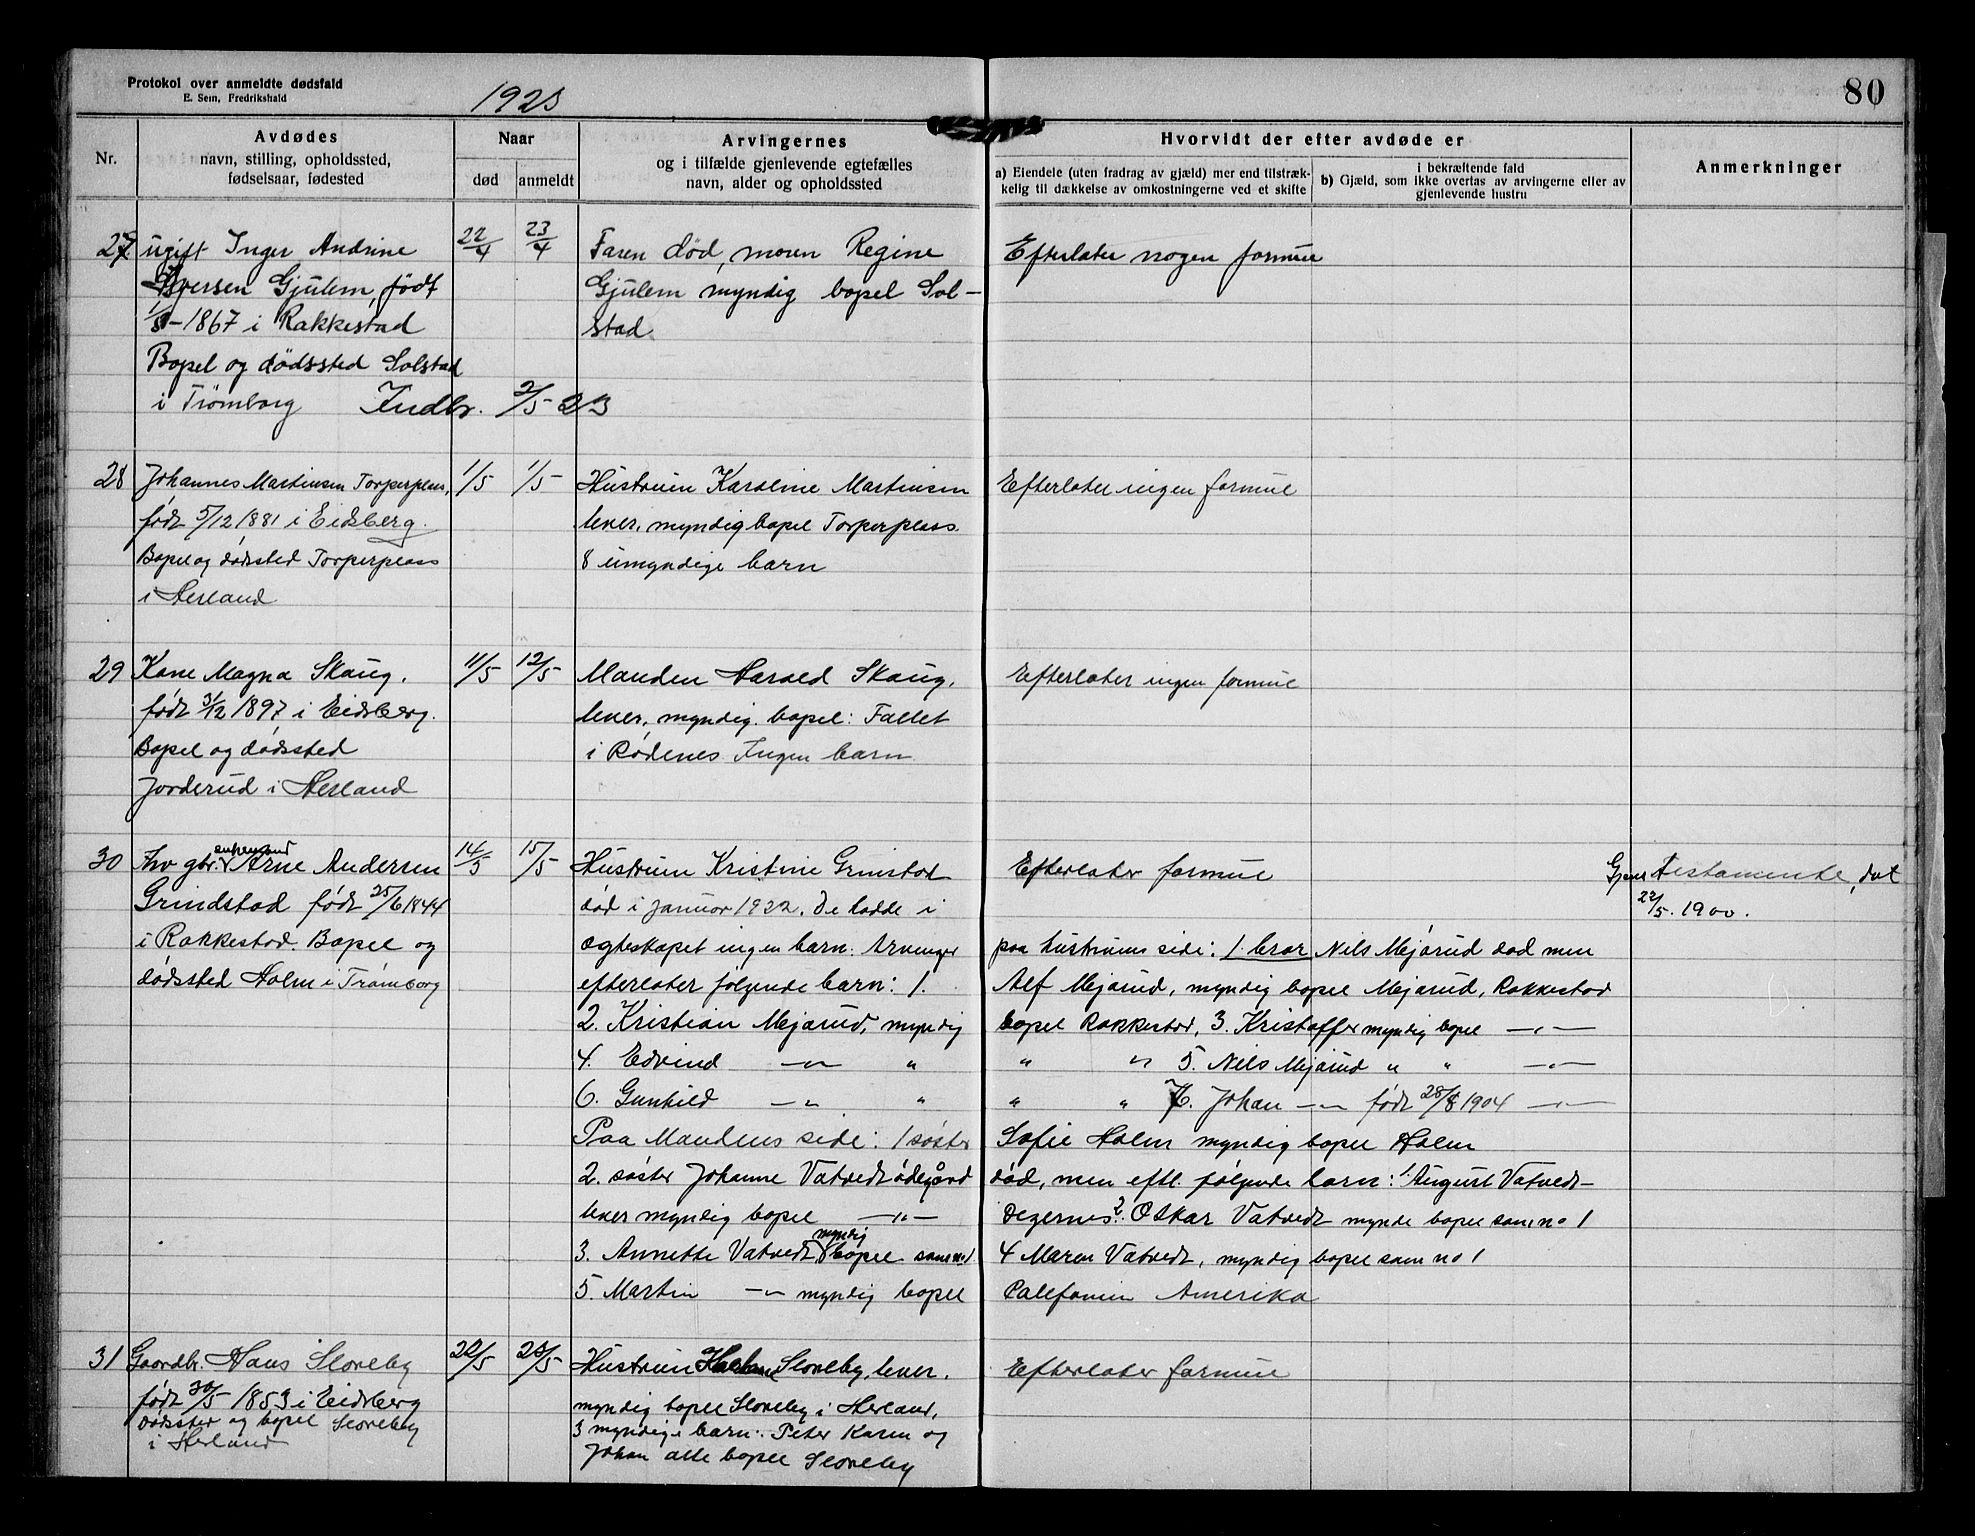 Protokol over anmeldte dødsfald
E. Sem, Fredrikshald
1923
80
Nr.
Avdødes
navn, stilling, opholdssted,
fødselsaar, fødested
Naar
død
anmeldt
Arvingernes
og i tilfælde gjenlevende egtefælles
navn, alder og opholdssted
Hvorvidt der efter avdøde er
a) Eiendele (uten fradrag av gjæld) mer end tilstræk-
kelig til dækkelse av omkostningerne ved et skifte
i bekræftende fald
b) Gjæld, som ikke overtas av arvingerne eller av
gjenlevende hustru
Anmerkninger
27. ugift Inger Andrine
Iversen Gjulem, født
-1867 i Rakkestad
Bopel og dødssted Solstad
i Trømborg Indbr. 2/5-23
22/4
23/4
Faren død, moren Regine
Gjulem myndig bopel Sol-
stad
Efterlater nogen formue
28 Johannes Martinsen Torperplass,
født 5/12 1881 i Eidsberg.
Bopel og dødssted Torperplass
i Herland
1/5
1/5
Hustruen Karoline Martinsen
lever, myndig bopel Torperplass.
8 umyndige barn
Efterlater ingen formue
29 Kone Magna Skaug.
født 3/12 1897 i Eidsberg.
Bopel og dødssted
Jorderud i Herland
11/5
12/5
Manden Harald Skaug,
lever, myndig. bopel: Fallet
i Rødenes Ingen barn
Efterlater ingen formue
30 Fhv gbr. enkemand Arne Andersen
Grindstad født 25/6 1844
i Rakkestad. Bopel og
dødssted Holm i Trømborg
14/5
15/5
Hustruen Kristine Grinstad
død i januar 1922. De hadde i
ægteskapet ingen barn. Arvinger
efterlater følgende barn: 1.
2. Kristian Mejarud, myndig
4. Edvind -"- "
6. Gunhild -"- "
Paa Mandens side: 1 søster
2. søster Johanne Vatvedt ødegård
lever myndig bopel -"-
3. Annette Vatvedt myndig bopel som no 1
5. Martin -"- myndig bopel
Efterlater formue
paa hustruens side: 1 bror Nils Mejarud død men
Alf Mejarud, myndig bopel Mejarud, Rakkestad
bopel Rakkestad, 3. Kristoffer myndig bopel -"-
" " 5. Nils Mejarud " " -"-
" " 7. Johan -"- født 28/8 1904 -"-
Sofie Holm myndig bopel Holm
død, men eftl. følgende barn: 1. August Vatvedt-
Degernes 2. Oskar Vatvedt mynde bopel som no 1
4 Maren Vatvedt, myndig bopel som no 1
Calefonien Amerika
Gjens. testamente, dat
22/5. 1900.
31 Gaardbr. Hans Sloreby
født 30/5 1853 i Eidsberg
dødssted og bopel Sloreby
i Herland
22/5
23/5
Hustruen Sloreby, lever.
myndig bopel Sloreby i Herland,
3 myndige barn: Peter Karen og
Johan alle bopel Sloreby
Efterlater formue